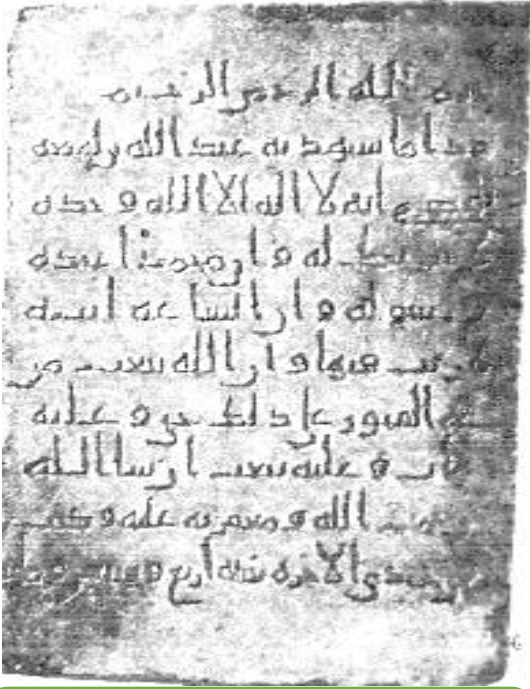 بسم الله الرحمن الرحيم
هذا ما شهد به عبد الله بن لهيعه
الحضرمي انه لا اله الا الله وحده
لا شريك له وان محمدا عبده
ورسوله وان الساعه اتيه
لا ريب فيها وان الله يبعث من
في القبور على ذلك حيي وعليه
مات وعليه يبعث ان شا الله
الله ومغفرته عليه وكتب
في جمدى الاخره سنه اربع وسبعين